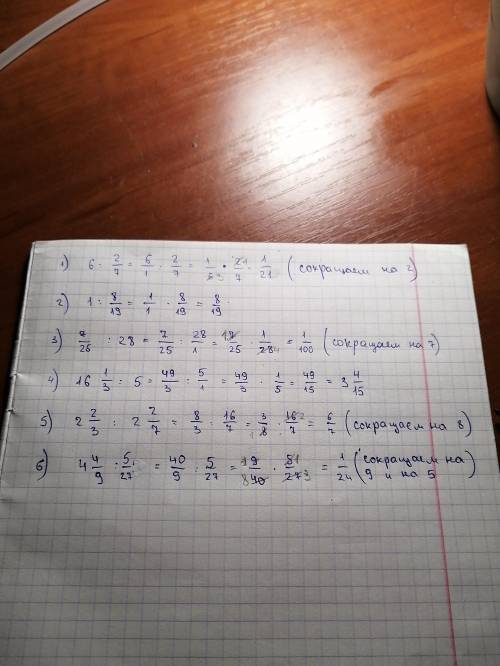 1) 6 : 2/7 = 6/1 : 2/7 = 1/6 3 · 21/7 = 1/21 (сокращаем на 2)
2) 1 : 8/19 = 1/1 · 8/19 = 8/19
3) 7/25 : 28 = 7/25 : 28/1 = 17/25 · 1/28 4 = 1/100 (сокращаем на 7)
4) 16 1/3 : 5 = 49/3 : 5/1 = 49/3 · 1/5 = 49/15 = 3 4/15
5) 2 2/3 : 2 2/7 = 8/3 : 16/7 = 3/1 8 · 16 2/7 = 6/7 (сокращаем на 8)
6) 4 4/9 : 5/27 = 40/9 : 5/27 = 1 9/8 40 · 5 1/27 3 = 1/24 (сокращаем на 9 и на 5)